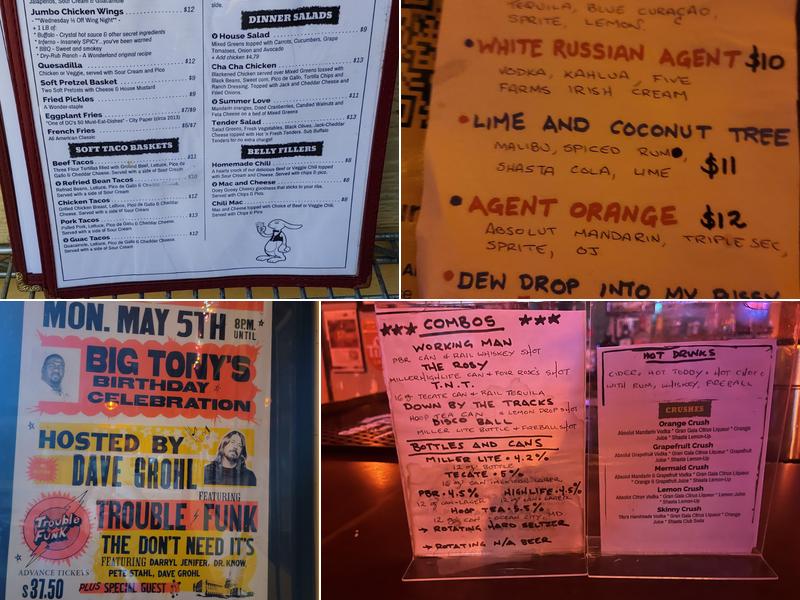 Jalapenos, Sour Cream & Guacamole
Jumbo Chicken Wings $12
**Wednesday ½ Off Wing Night**
• 1 LB of:
• Buffalo - Crystal hot sauce & other secret ingredients
• Inferno - Insanely SPICY...you've been warned
• BBQ - Sweet and smokey
• Dry-Rub Ranch - A Wonderland original recipe
Quesadilla $12
Chicken or Veggie, served with Sour Cream and Pico
Soft Pretzel Basket $9
Two Soft Pretzels with Cheese & House Mustard
Fried Pickles $9
A Wonder-staple
Eggplant Fries $7/$9
"One of DC's 50 Must-Eat-Dishes" - City Paper (circa 2013)
French Fries $5/$7
All American Classic
SOFT TACO BASKETS
Beef Tacos $11
Three Flour Tortillas filled with Ground Beef, Lettuce, Pico de
Gallo & Cheddar Cheese. Served with a side of Sour Cream
Refried Bean Tacos $10
Refried Beans, Lettuce, Pico de Gallo & Cheddar
Cheese. Served with a side of Sour Cream
Chicken Tacos $12
Grilled Chicken Breast, Lettuce, Pico de Gallo & Cheddar
Cheese. Served with a side of Sour Cream
Pork Tacos $13
Pulled Pork, Lettuce, Pico de Gallo & Cheddar Cheese.
Served with a side of Sour Cream
Guac Tacos $12
Guacamole, Lettuce, Pico de Gallo & Cheddar Cheese.
Served with a side of Sour Cream
DINNER SALADS
House Salad $9
Mixed Greens topped with Carrots, Cucumbers, Grape
Tomatoes, Onion and Avocado
+ Add chicken $4.79
Cha Cha Chicken $13
Blackened Chicken served over Mixed Greens tossed with
Black Beans, Sweet corn, Pico de Gallo, Tortilla Chips and
Ranch Dressing. Topped with Jack and Cheddar Cheese and
Fried Onions.
Summer Love $11
Mandarin oranges, Dried Cranberries, Candied Walnuts and
Feta Cheese on a bed of Mixed Greens
Tender Salad $13
Salad Greens, Fresh Vegetables, Black Olives, Jack-Cheddar
Cheese topped with Hot & Fresh Tenders. Sub Buffalo
Tenders for no extra charge!
BELLY FILLERS
Homemade Chili $8
A hearty crock of our delicious Beef or Veggie Chili topped
with Sour Cream and Cheese. Served with chips & pico.
Mac and Cheese $8
Ooey Gooey Cheesy goodness that sticks to your ribs.
Served with Chips & Pico.
Chili Mac $8
Mac and Cheese topped with Choice of Beef or Veggie Chili.
Served with Chips & Pico
TEQUILA, BLUE CURAÇAO,
SPRITE, LEMON.
• WHITE RUSSIAN AGENT $10
VODKA, KAHLUA, FIVE
FARMS IRISH CREAM
• LIME AND COCONUT TREE
MALIBU, SPICED RUM,
SHASTA COLA, LIME $11
• AGENT ORANGE $12
ABSOLUT MANDARIN, TRIPLE SEC,
SPRITE, OJ
• DEW DROP INTO MY
MON. MAY 5TH 8PM. UNTIL
BIG TONY'S
BIRTHDAY
CELEBRATION
HOSTED BY
DAVE GROHL
FEATURING
TROUBLE FUNK
Trouble FUNK
THE DON'T NEED IT'S
FEATURING DARRYL JENIFER, DR. KNOW,
PETE STAHL, DAVE GROHL
ADVANCE TICKETS
$37.50 PLUS SPECIAL GUEST
COMBOS
WORKING MAN
PBR CAN & RAIL WHISKEY SHOT
THE ROBY
MILLER HIGHLIFE CAN & FOUR ROSE'S SHOT
T.N.T.
16 OZ TECATE CAN & RAIL TEQUILA
DOWN BY THE TRACKS
HOOP TEA CAN & LEMON DROP SHOT
DISCO BALL
MILLER LITE BOTTLE & FIREBALL SHOT
BOTTLES AND CANS
MILLER LITE • 4.2%
12 OZ BOTTLE
TECATE • 5%
16 OZ CAN LAGER
PBR • 4.5% HIGHLIFE • 4.5%
12 OZ CAN LAGER 12 OZ CAN LAGER
HOOP TEA • 5.5%
12 OZ CAN OCEAN CITY, MD
→ ROTATING HARD SELTZER
→ ROTATING N/A BEER
HOT DRINKS
CIDER, HOT TODDY & HOT CHOC
WITH RUM, WHISKEY, FIREBALL
CRUSHES
Orange Crush
Absolut Mandarin Vodka * Gran Gala Citrus Liqueur * Orange
Juice * Shasta Lemon-Up
Grapefruit Crush
Absolut Grapefruit Vodka * Gran Gala Citrus Liqueur * Grapefruit
Juice * Shasta Lemon-Up
Mermaid Crush
Absolut Mandarin & Grapefruit Vodka * Gran Gala Citrus Liqueur
* Orange & Grapefruit Juice * Shasta Lemon-Up
Lemon Crush
Absolut Citron Vodka * Gran Gala Citrus Liqueur * Lemon Juice
* Shasta Lemon-Up
Skinny Crush
Tito's Handmade Vodka * Gran Gala Citrus Liqueur * Orange
Juice * Shasta Club Soda